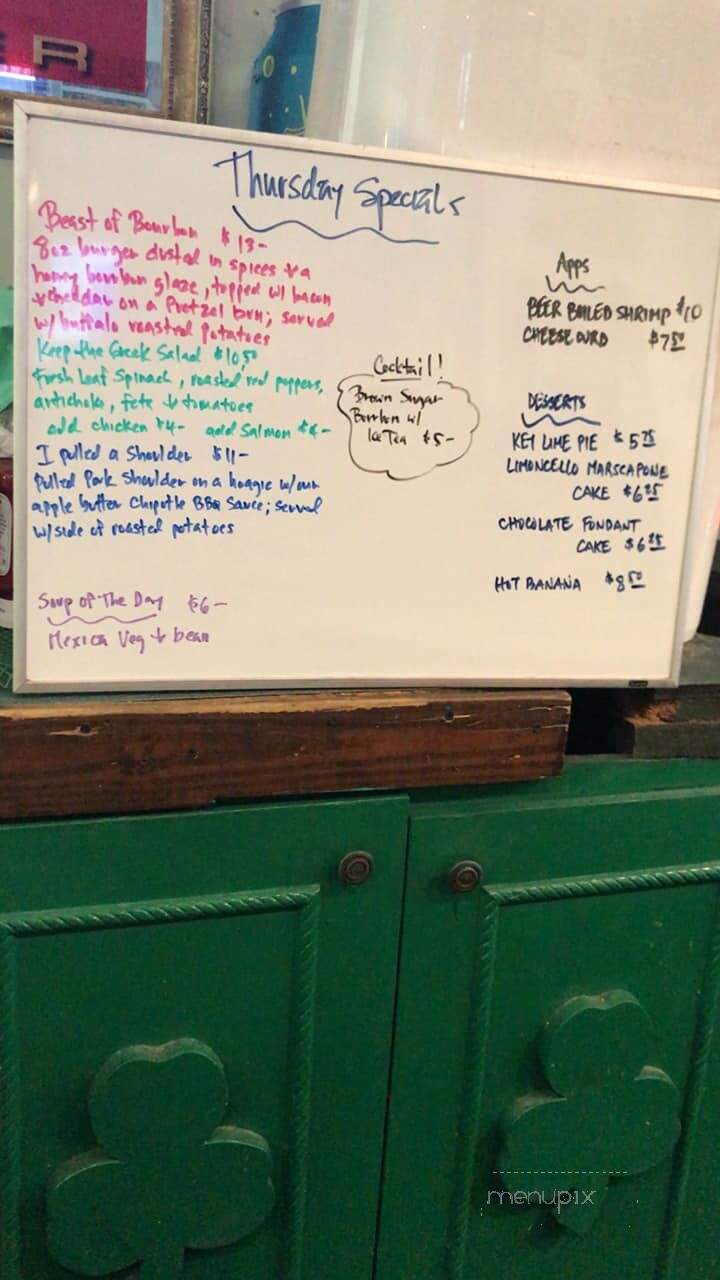 ER
Thursday Specials
Beast of Bourbon $13-
8oz burger dusted in spices + a
honey bourbon glaze, topped w/ bacon
+ cheddar on a Pretzel bun; served
w/ buffalo roasted potatoes
Keep the Greek Salad $10.50
Fresh Leaf Spinach, roasted red peppers,
artichoke, feta + tomatoes
add chicken $4- add Salmon $6-
I pulled a Shoulder $11-
Pulled Pork Shoulder on a hoagie w/ our
apple butter Chipotle BBQ Sauce; served
w/ side of roasted potatoes
Soup of The Day $6-
Mexica Veg + bean
Cocktail!
Brown Sugar
Bourbon w/
Ice Tea $5-
Apps
BEER BOILED SHRIMP $10
CHEESE CURD $7.50
DESSERTS
KEY LIME PIE $5.25
LIMONCELLO MARSCAPONE
CAKE $6.25
CHOCOLATE FONDANT
CAKE $6.25
HOT BANANA $8.50
menupix